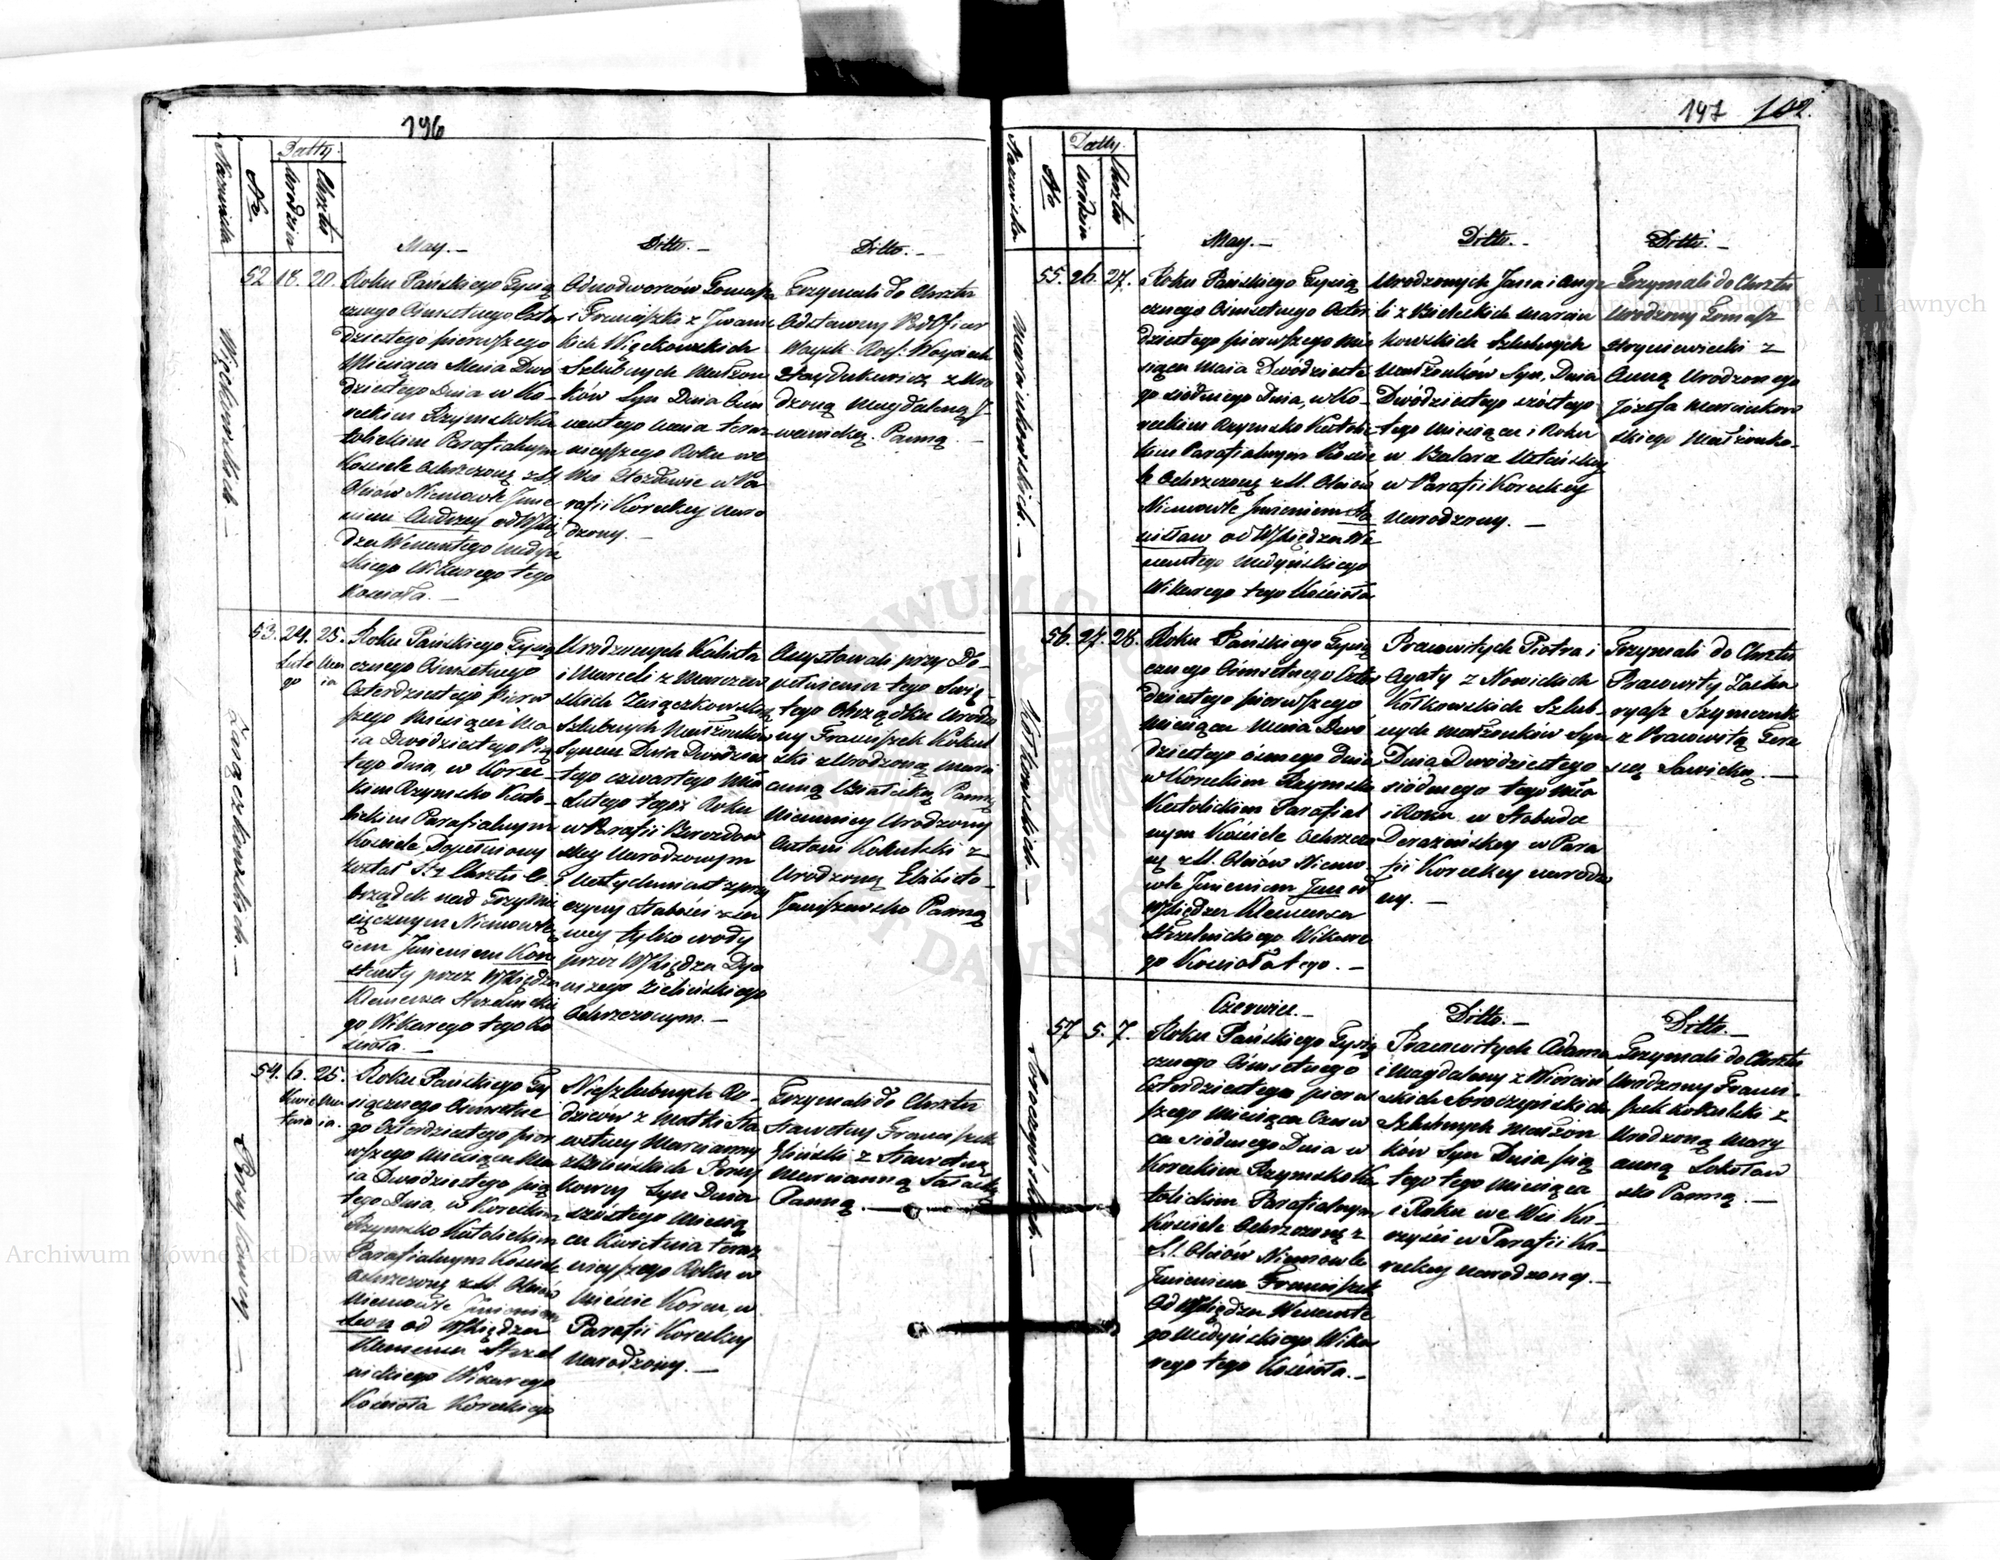 196
Datty.
Nazwiska
No.
Urodzin
Chrztu
May. —
Ditto. —
Ditto. —
Więckowskich. —
52. 18. 20.
Roku Pańskiego Tysią
cznego Ośmsetnego Czter
dziestego pierwszego
Miesiąca Maia Dwó
dziestego Dnia w Ko-
reckim Rzymsko Ka
tolickim Parafialnym
Kościele Ochrzczone z S.
Oleiów Niemowle Jmie
niem Andrzey od WXię
dza Wincentego Medyń
skiego Wikarego tego
Kościoła. —
Odnodworców Tomasza
i Franciszki z Jwanic
kich Więckowskich
Szlubnych Małżon
ków Syn Dnia Ośm
nastego Maia teraz
nieyszego Roku we
Wsi w Pa
rafii Koreckey Naro
dzony. —
Trzymali do Chrztu
Odstawny PodOficer
Woysk Ross: Woyciech
z Uro
dzoną Magdaleną J
wanicką Panną. —
Zaiączkowskich. —
53. 24. 25.
Lute
go
Ma
ia
Roku Pańskiego Tysią
cznego Ośmsetnego
Czterdziestego pierw
szego Miesiąca Ma
ia Dwódziestego Pią
tego dnia, w Korec-
kim Rzymsko Kato-
lickim Parafialnym
Kościele Dopełniony
został St: Chrztu O-
brządek nad Trzymie
sięcznym Niemowlę
ciem Jmieniem Kon
stanty przez WXiędza
Klemensa Strzelnickie
go Wikarego tego Ko
ścioła. —
Urodzonych Kalixta
i Marceli z
skich Zaiączkowskich
Szlubnych Małżonków
Synem Dnia Dwódzies
tego czwartego Mca
Lutego tegoż Roku
w Parafii Berezdow
skey Narodzonym
i Natychmiast z przy
czyny słabości zdro
wey tylko wody
przez WXiędza Dyo
nizego Zielińskiego
Ochrzczonym. —
Assystowali przy Do-
pełnieniu tego Swię
tego Obrządku Urodzo
ny Franciszek Kokul
ski z Urodzoną Mary
anną Panną
Niemniey Urodzony
Antoni Kokulski z
Urodzoną Elżbietą
Janiszewską Panną
54. 6. 25.
Kwie
tnia
Ma
ia.
Roku Pańskiego Ty
siącznego Ośmsetne
go Czterdziestego pier
wszego Miesiąca Ma
ia Dwódziestego pią
tego Dnia, w Koreckim
Rzymsko Katolickim
Parafialnym Kościele
Ochrzczone z S. Oleiów
Niemowle Jmieniem
Leon od WXiędza
Klemensa Strzel
nickiego Wikarego
Kościoła Koreckiego
Nieszlubnych Ro-
dziców z Matki Sta
wetney Maryanny
Syn Dnia
szóstego Miesią
ca Kwietnia teraz
nieyszego Roku w
Mieście Korcu, w
Parafii Koreckey
Narodzony. —
Trzymali do Chrztu
Sławetny Franciszek
Gliński z Sławetną
Maryanną
Panną. —
197 102.
Datty.
Nazwiska
No
Urodzin
Chrztu
May. —
Ditto. —
Ditto. —
Marcinkowskich. —
55. 26. 27.
Roku Pańskiego Tysią
cznego Ośmsetnego Czter
dziestego pierwszego Mie
siąca Maia Dwódzieste
go siódmego Dnia, w Ko-
reckim Rzymsko Katolic
kim Parafialnym Koście
le Ochrzczone z S. Oleiów
Niemowle Jmieniem Sta
nisław od WXiędza Win
centego Medyńskiego
Wikarego tego Kościoła
Urodzonych Jana i Ange
li z Marcin
kowskich Szlubnych
Małżonków Syn, Dnia
Dwódziestego szóstego
tego Miesiąca i Roku
w
w Parafii Koreckey
Narodzony. —
Trzymali do Chrztu
Urodzony Tomasz
Hryniewiecki z
Anną Urodzonego
Józefa Marcinkow
skiego Małżonką. —
Kotkowskich. —
56. 27. 28.
Roku Pańskiego Tysią
cznego Ośmsetnego Czter
dziestego pierwszego
Miesiąca Maia Dwó
dziestego ósmego dnia
w Koreckim Rzymsko
Katolickim Parafial
nym Kościele Ochrzczo
ne z S. Oleiów Niemo
wle Jmieniem Jan od
WXiędza Klemensa
Strzelnickiego Wikare
go Kościoła tego. —
Pracowitych Piotra i
Agaty z Nowickich
Kotkowskich Szlub-
nych Małżonków Syn
Dnia Dwódziestego
siódmego tego Mca
i Roku w Słobudce
Derazińskey w Para
fii Koreckey narodzo
ny. —
Trzymali do Chrztu
Pracowity Zacha
ryasz Szymczuk
z Pracowitą Tere
ssą Sawicką. —
Czerwiec. —
Ditto. —
Ditto. —
57. 5. 7.
Roku Pańskiego Tysią
cznego Ośmsetnego
Czterdziestego pierw
szego Miesiąca Czerw
ca siódmego Dnia w
Koreckim Rzymsko Ka
tolickim Parafialnym
Kościele Ochrzczone z
S. Oleiów Niemowle
Jmieniem Franciszek
Od WXiędza Wincente
go Medyńskiego Wika
rego tego Kościoła. —
Pracowitych Adama
i Magdaleny z
Szlubnych Małżon
ków Syn Dnia pią
tego tego Miesiąca
i Roku we Wsi Ko-
w Parafii Ko-
reckey narodzony. —
Trzymali do Chrztu
Urodzony Franci-
szek Kokulski z
Urodzoną Mary
anną Sokołow
ską Panną. —
Archiwum Główne Akt Dawnych
Archiwum Główne Akt Dawnych